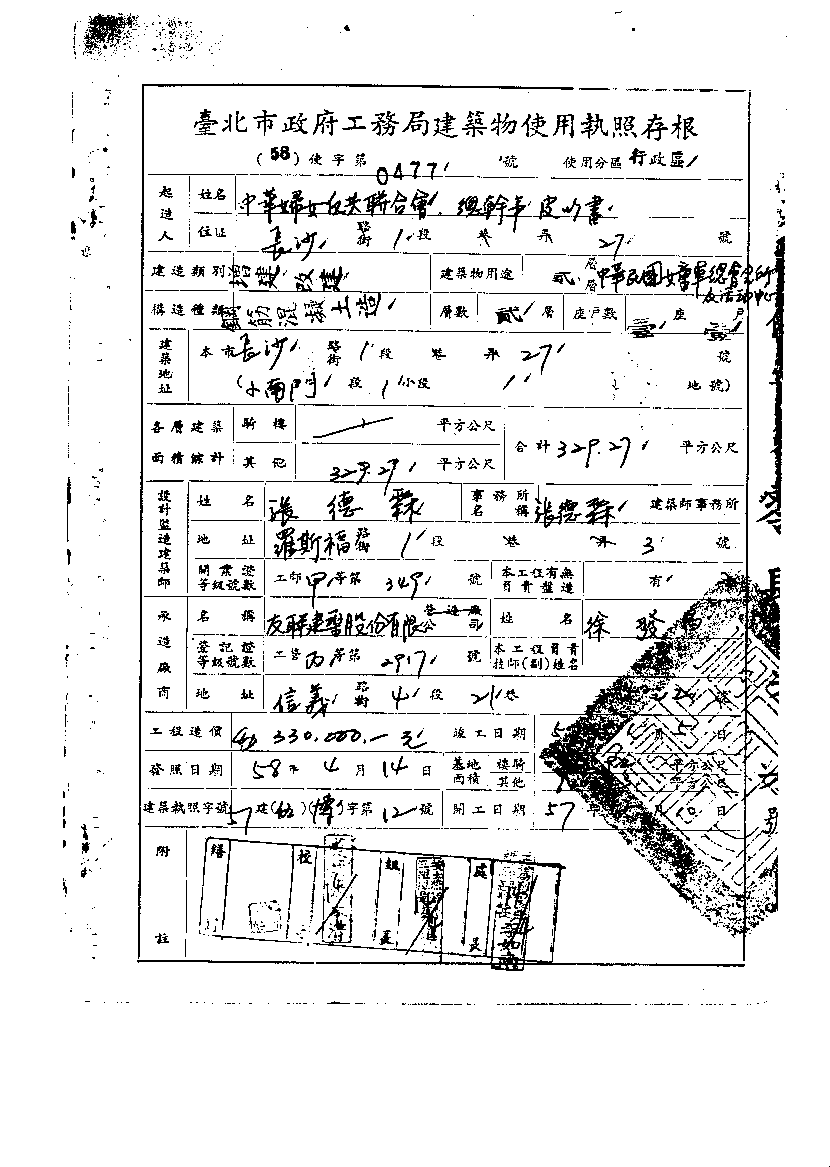 臺北市政府工務局建築物使用執照存根
(58) 使字第 0477 號 使用分區 行政區
起造人 姓名 中華婦女反共聯合會 總幹事 皮以書
住址 長沙 路街 1 段 巷 弄 27 號
建造類別 增建 改建 建築物用途 貳層 中華民國女童軍總會會所及活動中心
構造種類 鋼筋混凝土造 層數 貳 層 座戶數 壹 座 壹 戶
建築地址 本市 長沙 路街 1 段 巷 弄 27 號
(小南門 段 1 小段 地號)
各層建築面積綜計 騎樓 平方公尺 合計 329.27 平方公尺
其他 329.27 平方公尺
設計監造建築師 姓名 張德霖 事務所名稱 張德霖 建築師事務所
地址 羅斯福 路街 1 段 巷 弄 3 號
開業證等級號數 工師 甲 等第 349 號 本工程有無負責監造 有
承造廠商 名稱 友聯建營股份有限公司 營造廠 姓名 徐發
登記證等級號數 工營 丙 等第 2917 號 本工程負責技師(副)姓名
地址 信義 路街 4 段 21 巷 號
工程造價 330,000.–元 竣工日期 5 月 5 日
發照日期 58 年 4 月 14 日 基地面積 騎樓 平方公尺
其他 平方公尺
建築執照字號 57 建( )( )字第 12 號 開工日期 57 年 月 10 日
附註 繕 校 組長 處長